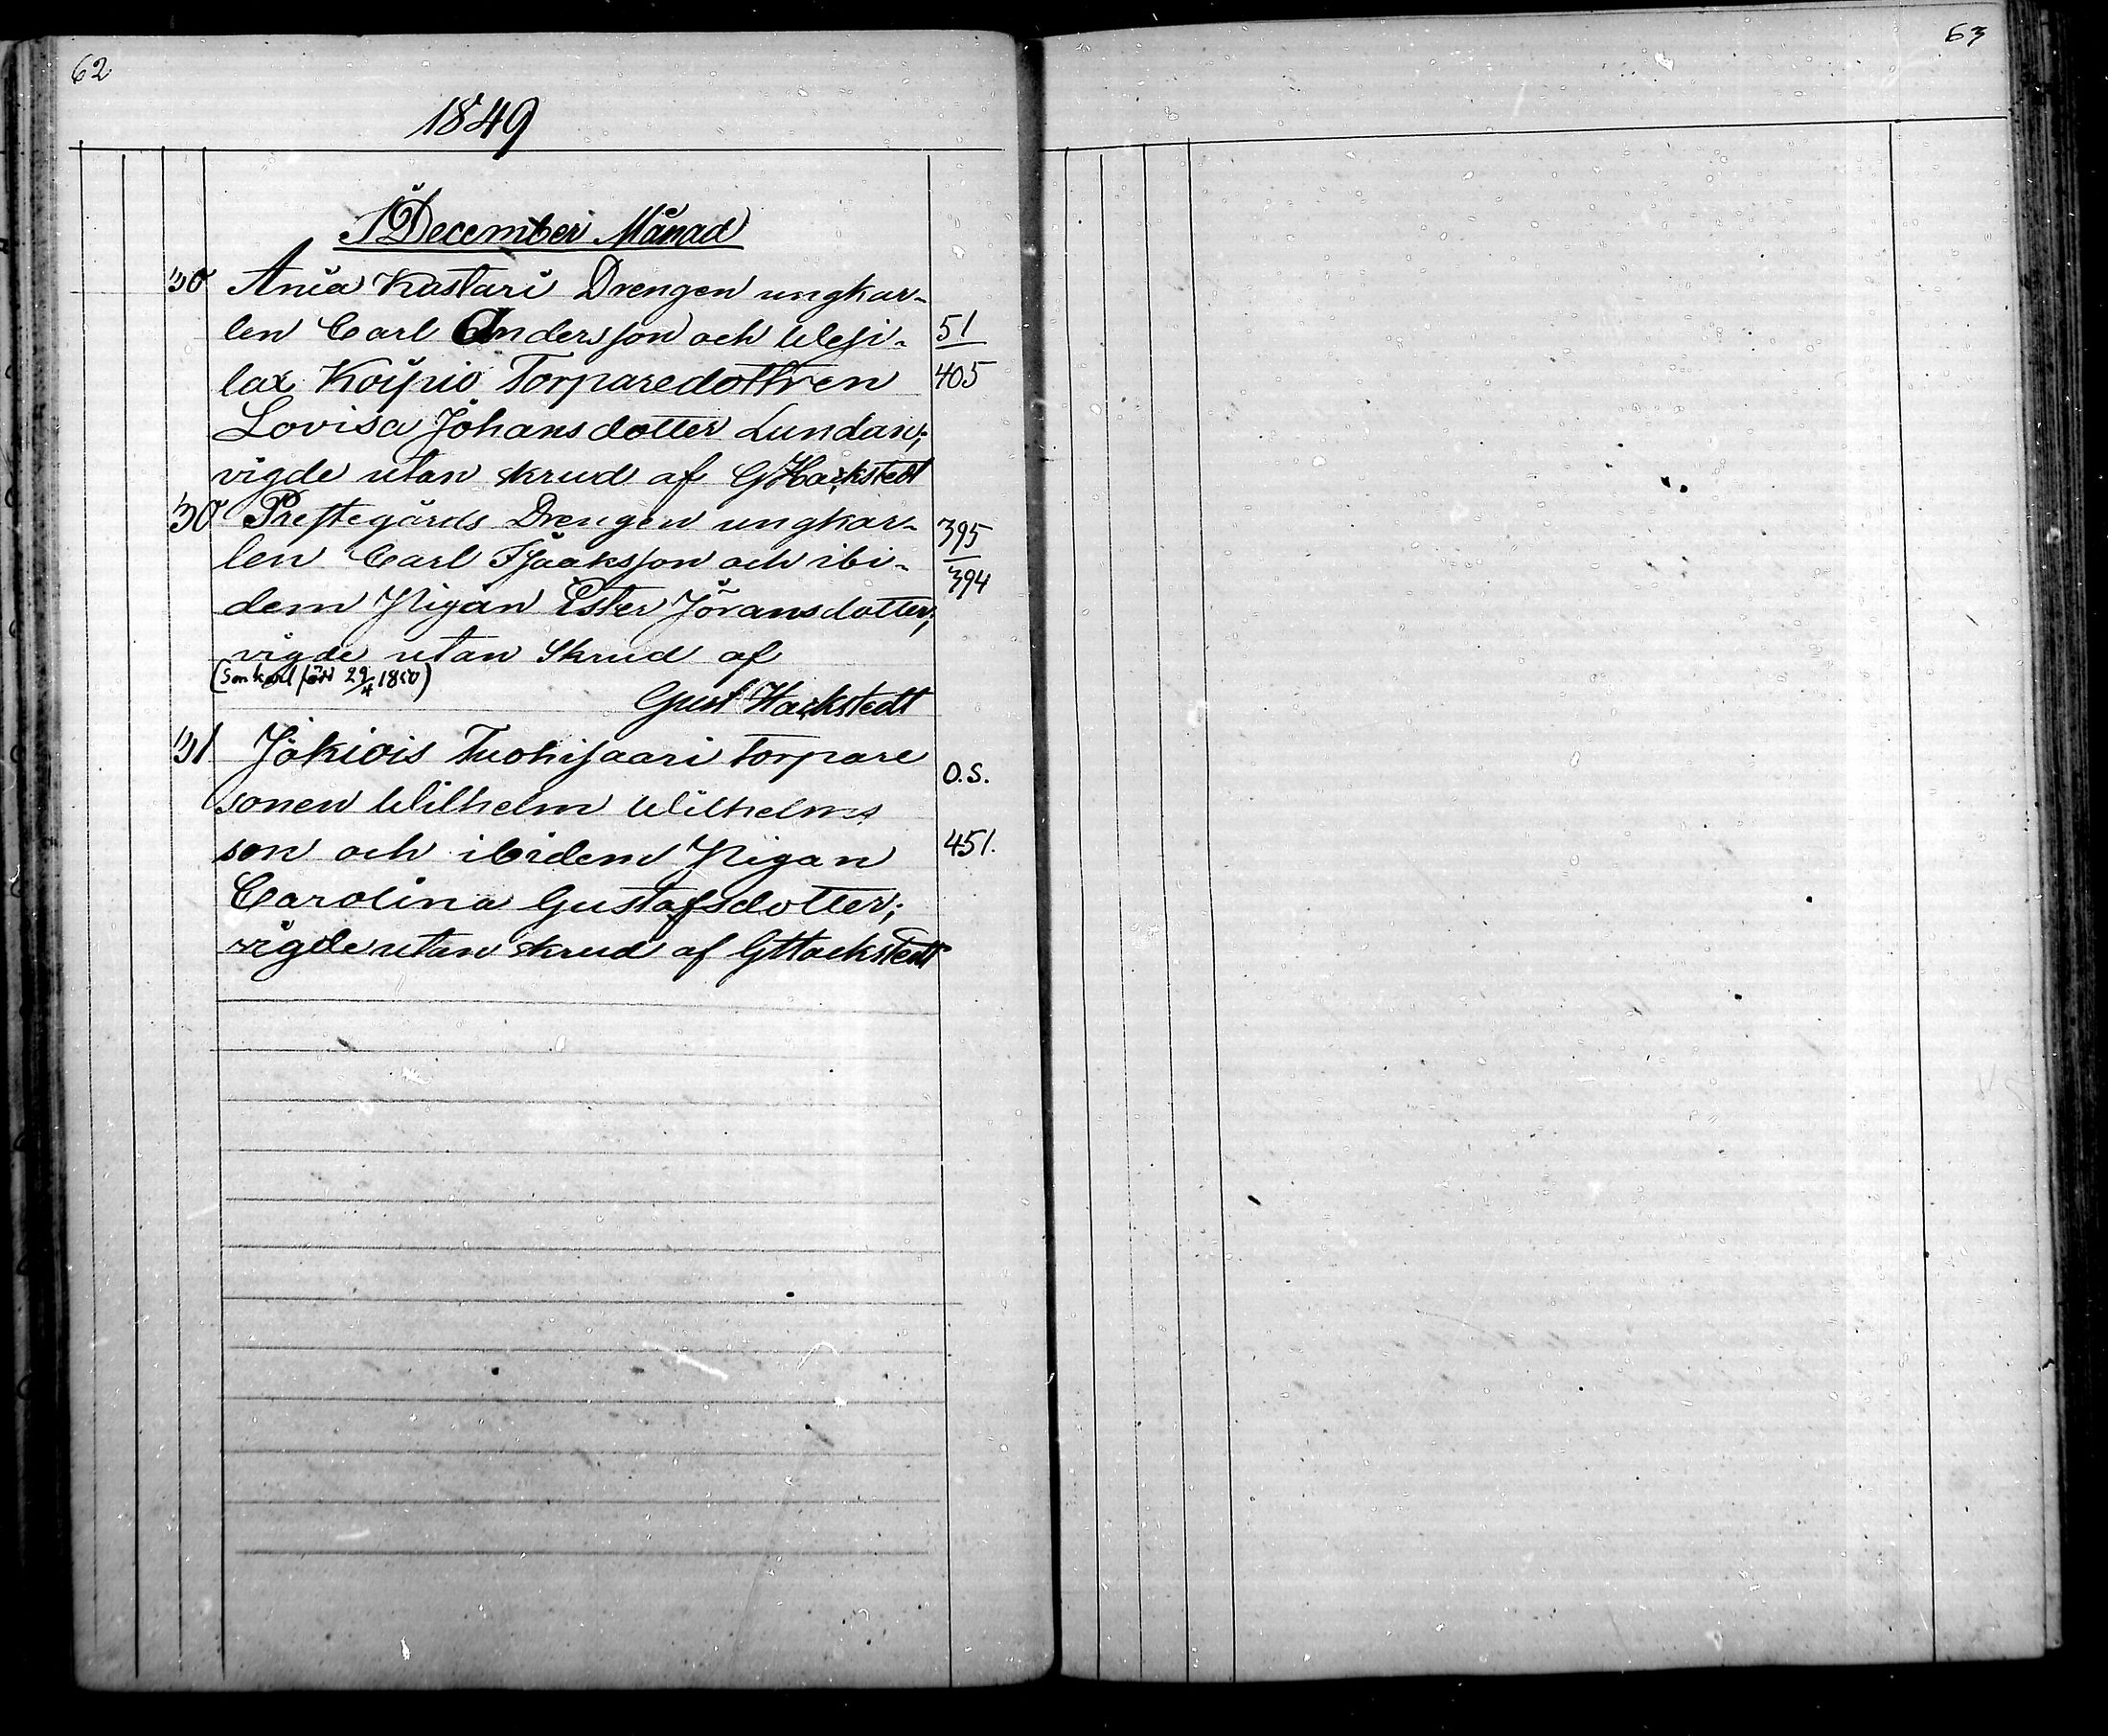 62
63
1849
I December Månad
30 Ania Kastari Drengen ungkar-
len Carl Andersson och Wesi- 51
lax Köÿpiö Torparedottren 405
Lovisa Johansdotter Lundan;
vigde utan skrud af GHackstedt
30 Prestegårds Drengen ungkar- 395
len Carl Isaaksson och ibi- 394
dem Pigan Ester Jöransdotter;
vigde utan Skrud af
(Son Karl född 29/4 1850)
Gust Hackstedt
31 Jokiois Tuohisaari torpare O.S.
sonen Wilhelm Wilhelms
son och ibidem Pigan 451.
Carolina Gustafsdotter;
vigde utan skrud af GHackstedt